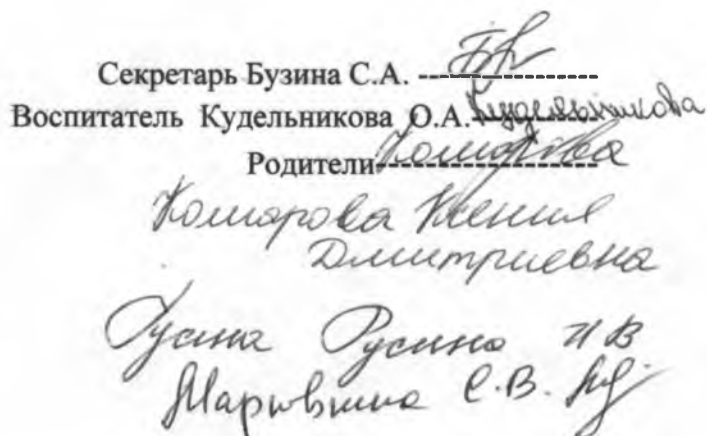 Секретарь Бузина С.А. ---------------
Воспитатель Кудельникова О.А. Кудельникова
Родители Комарова
Комарова Ксения
Дмитриевна
Русина Русина И В
С.В.